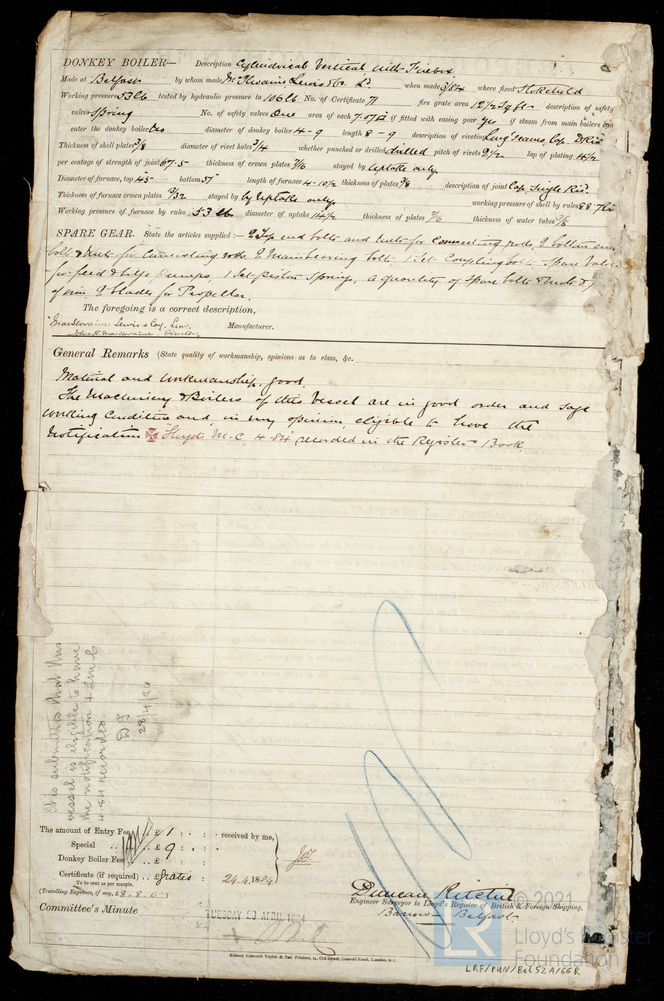 DONKEY BOILER— Description Cylindrical Vertical with Firebox
Made at Belfast by whom made McIlwaine Lewis & Co Ld when made 3/84 where fixed Stokehold
Working pressure 53 lb tested by hydraulic pressure to 106 lb No. of Certificate 71 fire grate area 12 1/2 Sq ft description of safety
valves Spring No. of safety valves One area of each 7.07 if fitted with easing gear yes if steam from main boilers can
enter the donkey boiler No diameter of donkey boiler 4-9 length 8-9 description of riveting Long seams, Lap, D Riv
Thickness of shell plates 3/8 diameter of rivet holes 3/4 whether punched or drilled drilled pitch of rivets 2 1/2 lap of plating 4 1/2
per centage of strength of joint 67.5 thickness of crown plates 7/16 stayed by uptake only
Diameter of furnace, top 45 bottom 51 length of furnace 4-10 1/2 thickness of plates 3/8 description of joint Lap Single Riv
Thickness of furnace crown plates 13/32 stayed by by uptake only working pressure of shell by rules 88.7 lb
Working pressure of furnace by rules 53 lb diameter of uptake 14 1/2 thickness of plates 7/16 thickness of water tubes 3/8
SPARE GEAR. State the articles supplied:— 2 Top end bolts and nuts for connecting rods, 2 bottom end
bolts & nuts for connecting rods, 2 Main bearing bolts 1 Set Coupling bolts, Spare Valves
for feed & bilge pumps, 1 Set Piston Springs, a quantity of spare bolts & nuts &
of iron, 2 blades for Propellor.
The foregoing is a correct description,
MacIlwaine Lewis & Coy. Lim. Manufacturer.
John H. MacIlwaine Director
General Remarks (State quality of workmanship, opinions as to class, &c.
Material and workmanship, good.
The Machinery & Boilers of this Vessel are in good order and safe
working condition and, in my opinion, eligible to have the
Notification Lloyd's M.C. 4-84 recorded in the Register Book.
It is submitted that this
vessel is eligible to have
the notification + LMC
4-84 recorded.
28/4/84
The amount of Entry Fee .. £ 1 : : received by me,
Special .. .. £ 9 : :
Donkey Boiler Fee .. £ : :
Certificate (if required) .. £ gratis : 24.4.1884
To be sent as per margin.
(Travelling Expenses, if any, £ 8.8.0)
Committee's Minute
TUESDAY 29 APRIL 1884
Duncan Ritchie
Engineer Surveyor to Lloyd's Register of British & Foreign Shipping.
Barrow - Belfast
© 2021
Lloyd's Register
Foundation
LRF/PUN/Bel52A/66R